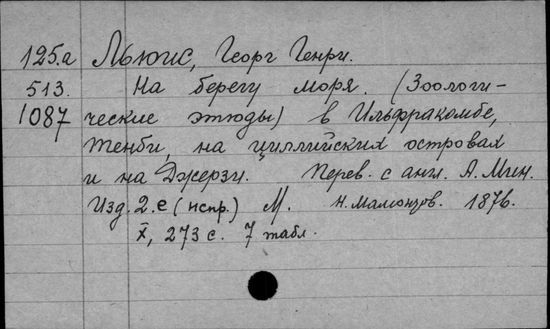 125.a Льюис, Георг Генри.
513. На берегу моря. (Зоологи-
1087 ческие этюды) в Ильфракомбе,
Тенби, на циллийских островах
и на Джерзи. Перев. с англ. А. Мин.
Изд. 2.е (испр.) М. Н. Мамонтов. 1876.
X, 273 с. 7 табл.